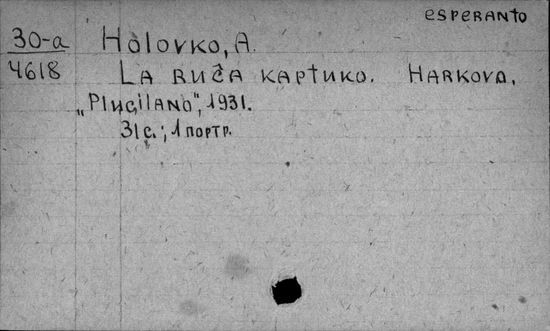 esperanto
30-a Holovko, A.
4618 La ruĉa kaptuko. Harkova,
„Plugilano", 1931.
31 с.; 1 портр.